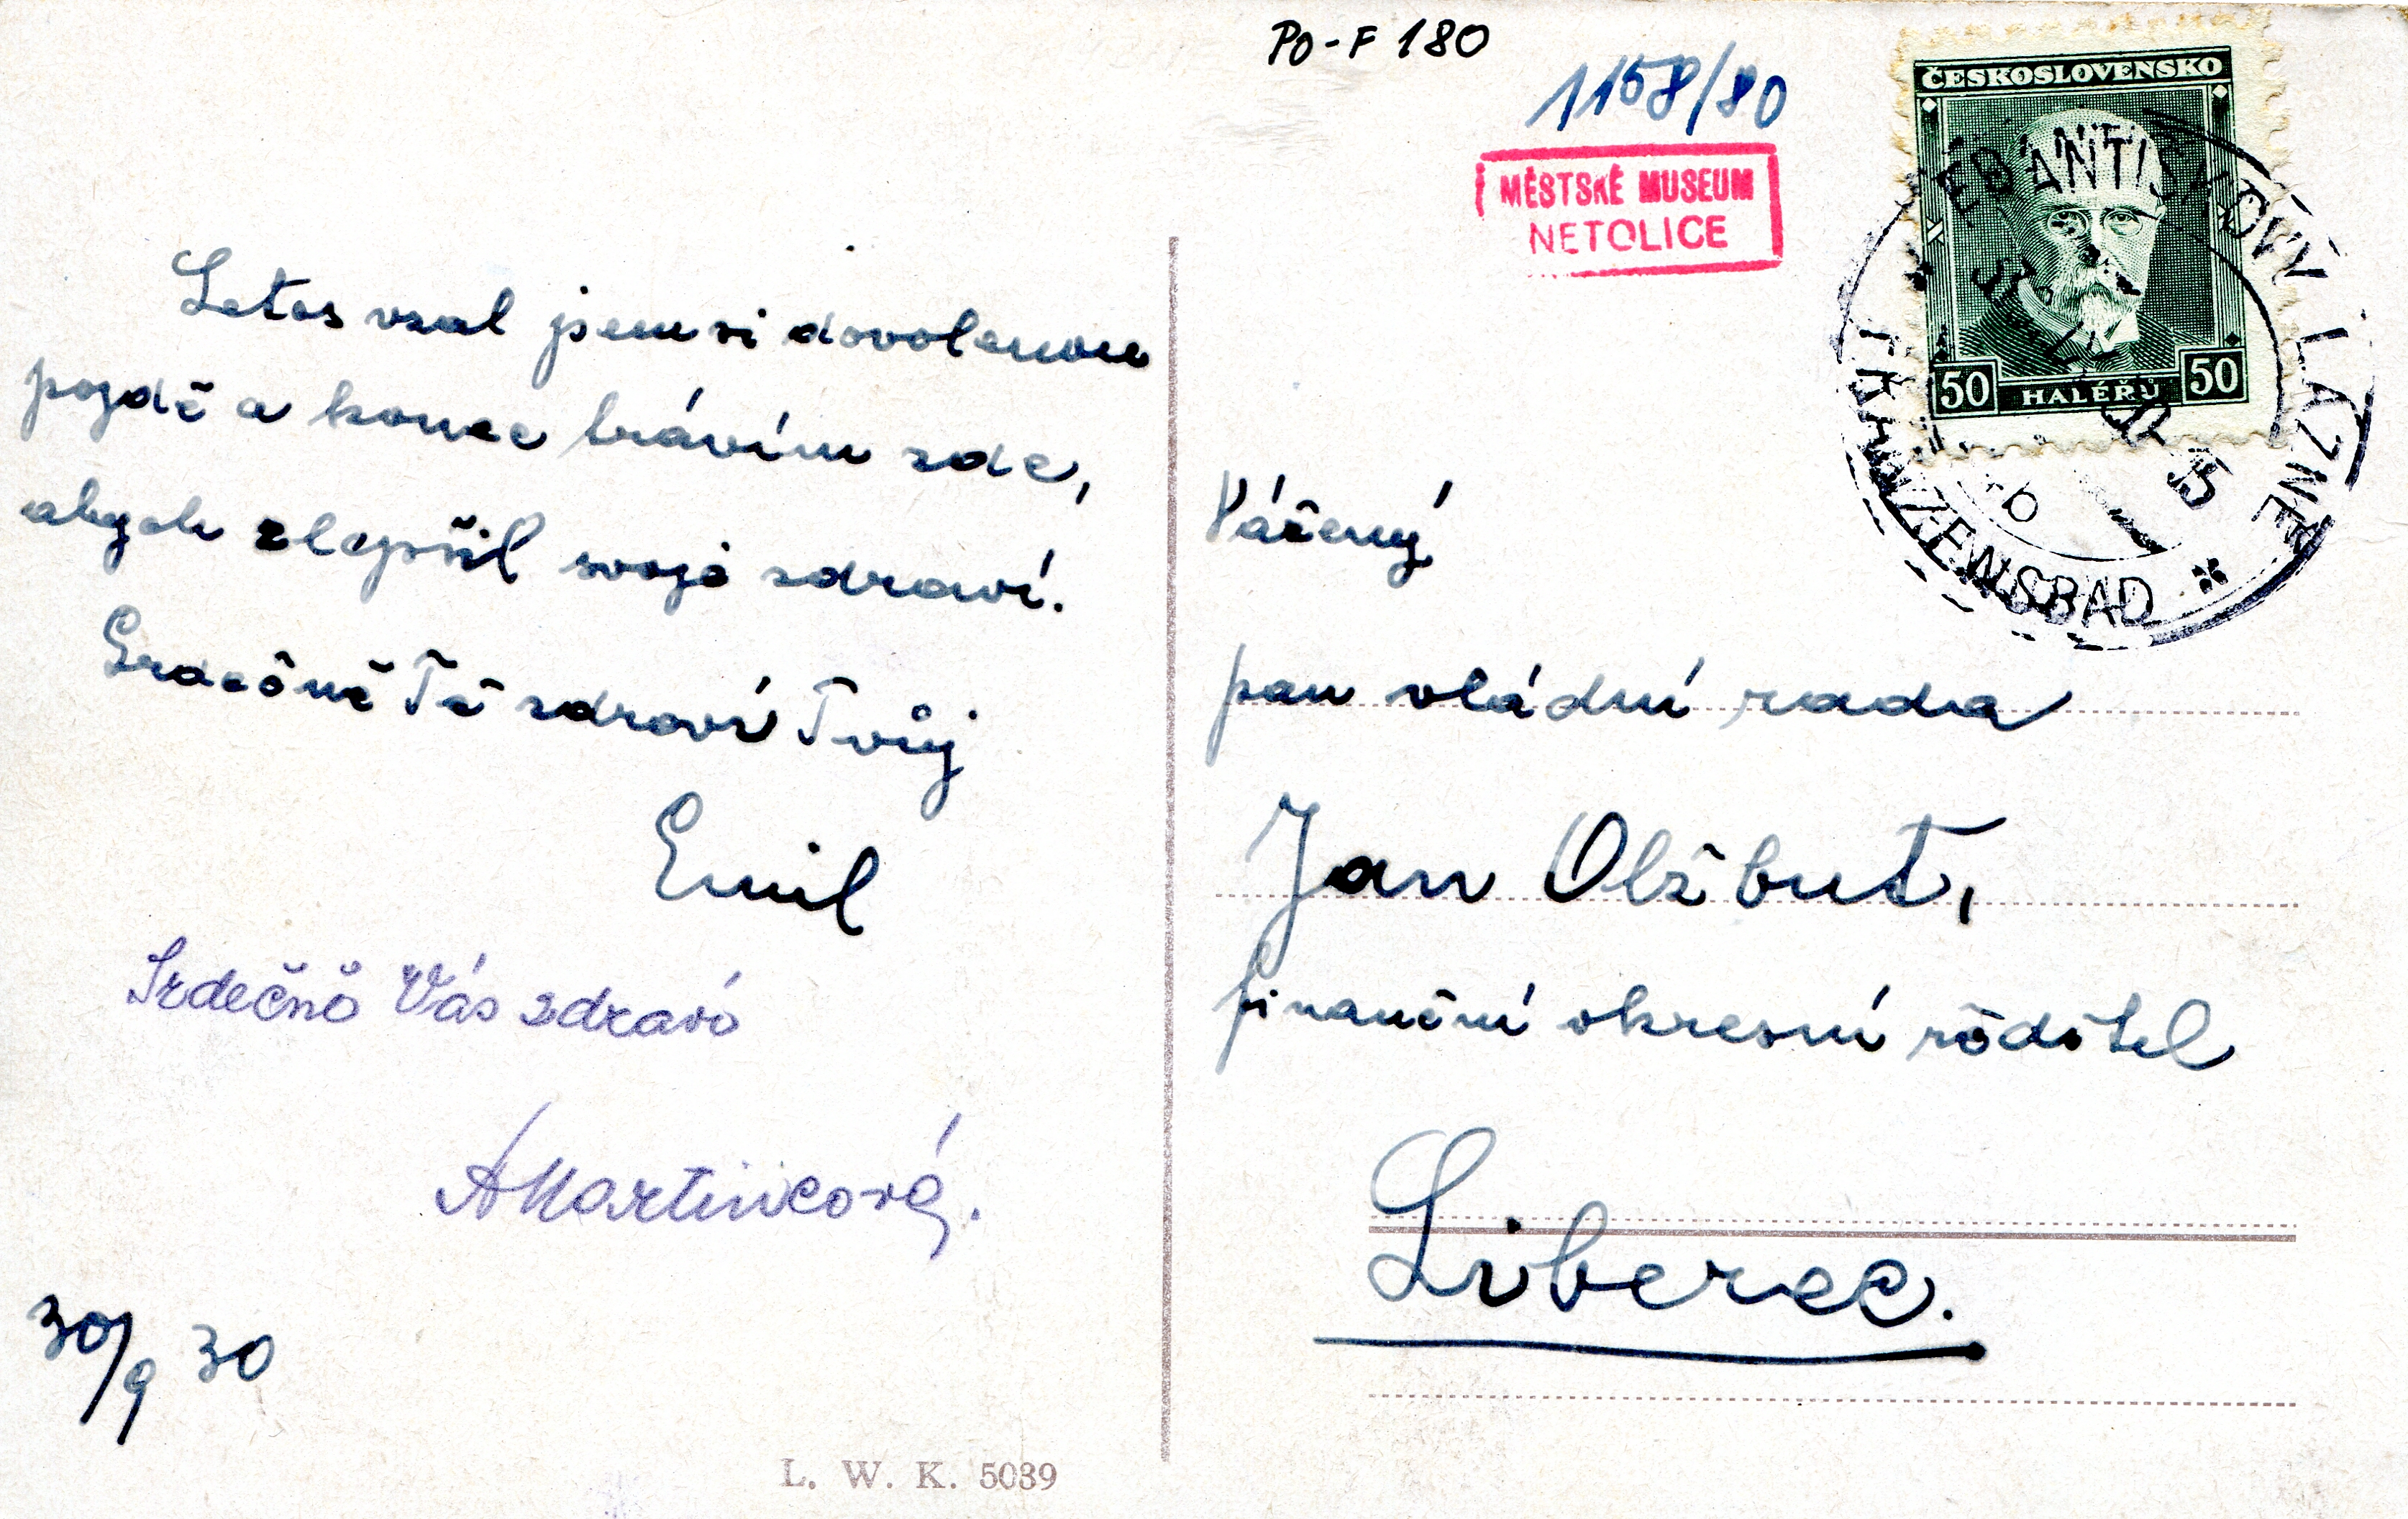 Po-F 180
1158/80
MĚSTSKÉ MUSEUM
NETOLICE
ČESKOSLOVENSKO
50 HALÉŘŮ 50
FRANTIŠKOVY LÁZNĚ
FRANZENSBAD
Letos vzal jsem si dovolenou
pozdě a konec trávím zde,
abych zlepšil svoje zdraví.
Srdečně Tě zdraví Tvůj
Emil
Srdečně Vás zdraví
AMartincová.
30/9 30
L. W. K. 5039
Vážený
pan vládní rada
Jan Olžbut,
finanční okresní ředitel
Liberec.